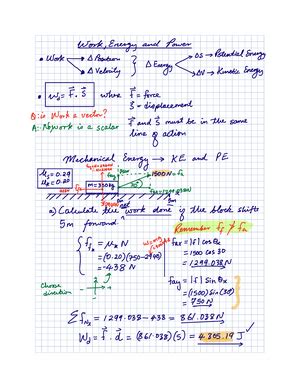 Work, Energy and Power
• Work → Δ Position
Δ Velocity
} Δ Energy
ΔS → Potential Energy
ΔV → Kinetic Energy
• Wd = F⃗ . S⃗ where f⃗ = force
S⃗ = displacement
Q: is Work a vector?
A: No, work is a scalar
F⃗ and S⃗ must be in the same
line of action
Mechanical Energy → KE and PE
1500N
5m
a) Calculate the work done if the block shifts
5m forward.
Remember
= (0.20)(750-2940)
= -438 N
fax = |f| cos θx
= 1500 cos 30
= 1299.038N
Choose
direction
fay = |f| sin θx
= (1500) sin(30)
= 750N
Σ fNx = 1299.038 - 438 = 861.038 N
Wd = f⃗ . d⃗ = (861.038)(5) = 4,305.19 J